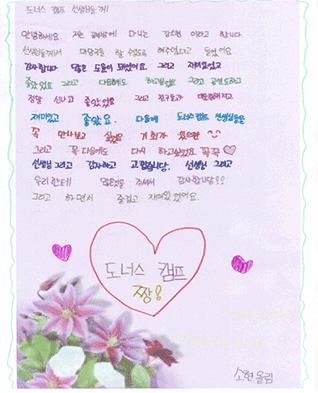 도너스 캠프 선생님들께!
안녕하세요 저는 공부방에 다니는 이라고 합니다
선생님들께서 할 수 있도록 해주셨다고 들었어요
감사합니다 많은 도움이 되었어요 그리고 재미있었고
좋았었어요 그리고 다음에도 하고싶었어요 그리고
정말 신나고 좋았었어요 그리고 친구들과
재미있고 좋았어요. 다음에 도너스캠프 선생님들을
꼭 만나보고 싶어요 기회가 있으면 ^^
그리고 꼭 다음에도 다시 하고싶었어요 꼭꼭♡
선생님 그리고 감사하고 고맙습니다. 선생님 그리고
우리한테 많은것을 주셔서 감사합니다!!
그리고 하면서 즐겁고 재미있었어요.
도너스 캠프
짱!
소현 올림